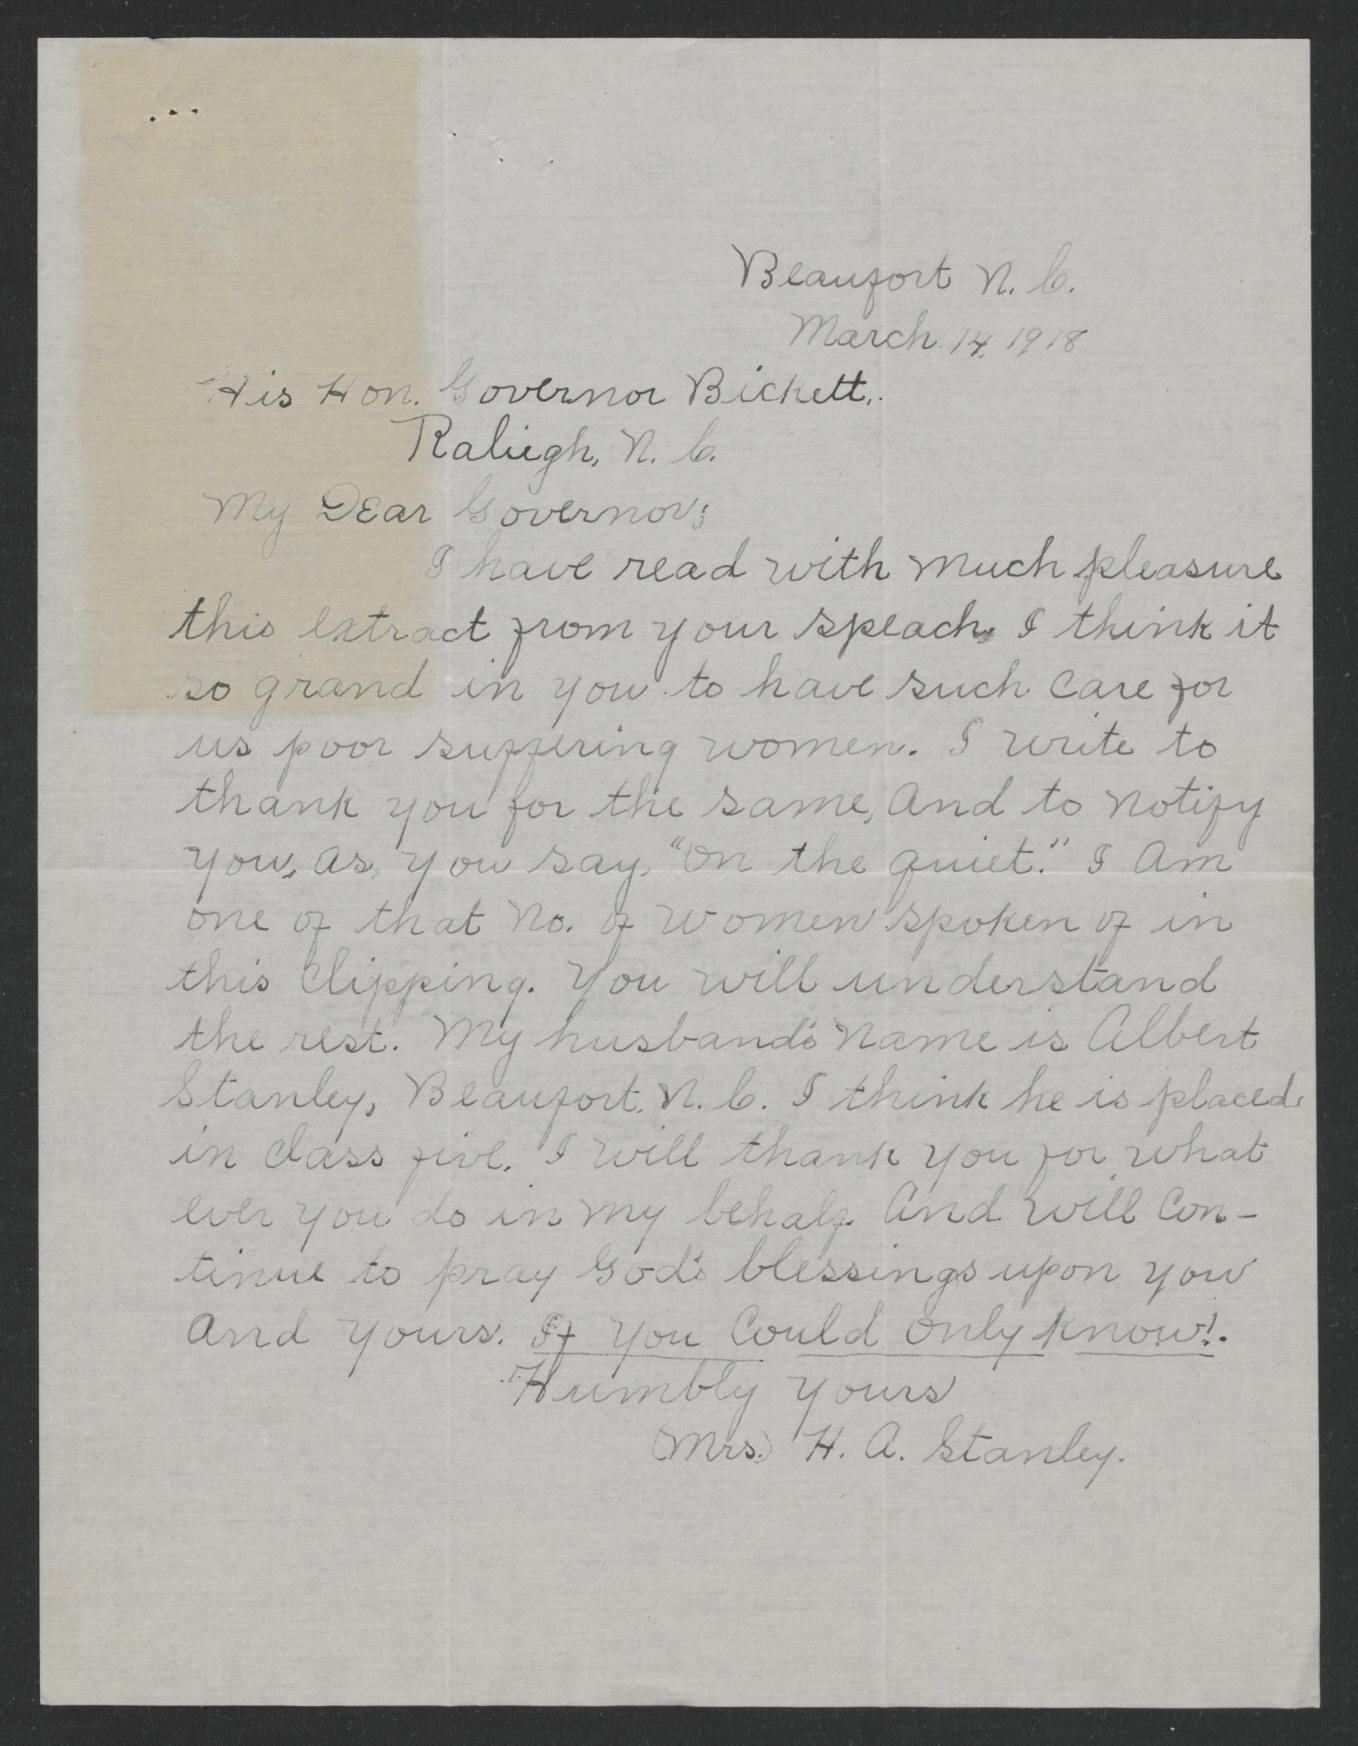 Beaufort N. C.
March 14, 1918
His Hon. Governor Bickett,.
Raliegh, N. C.
My Dear Governor;
I have read with much pleasure
this extract from your speach. I think it
so grand in you to have such care for
us poor suffering women. I write to
thank you for the same, And to notify
you, as, you say, "On the quiet." I Am
one of that No. of women spoken of in
this Clipping. You will understand
the rest. My husband's Name is Albert
Stanley, Beaufort, N. C. I think he is placed
in class five. I will thank you for what
ever you do in my behalf. And will Con-
tinue to pray God's blessings upon you
And yours. If you Could Only know!.
Humbly yours
(Mrs.) H. A. Stanley.